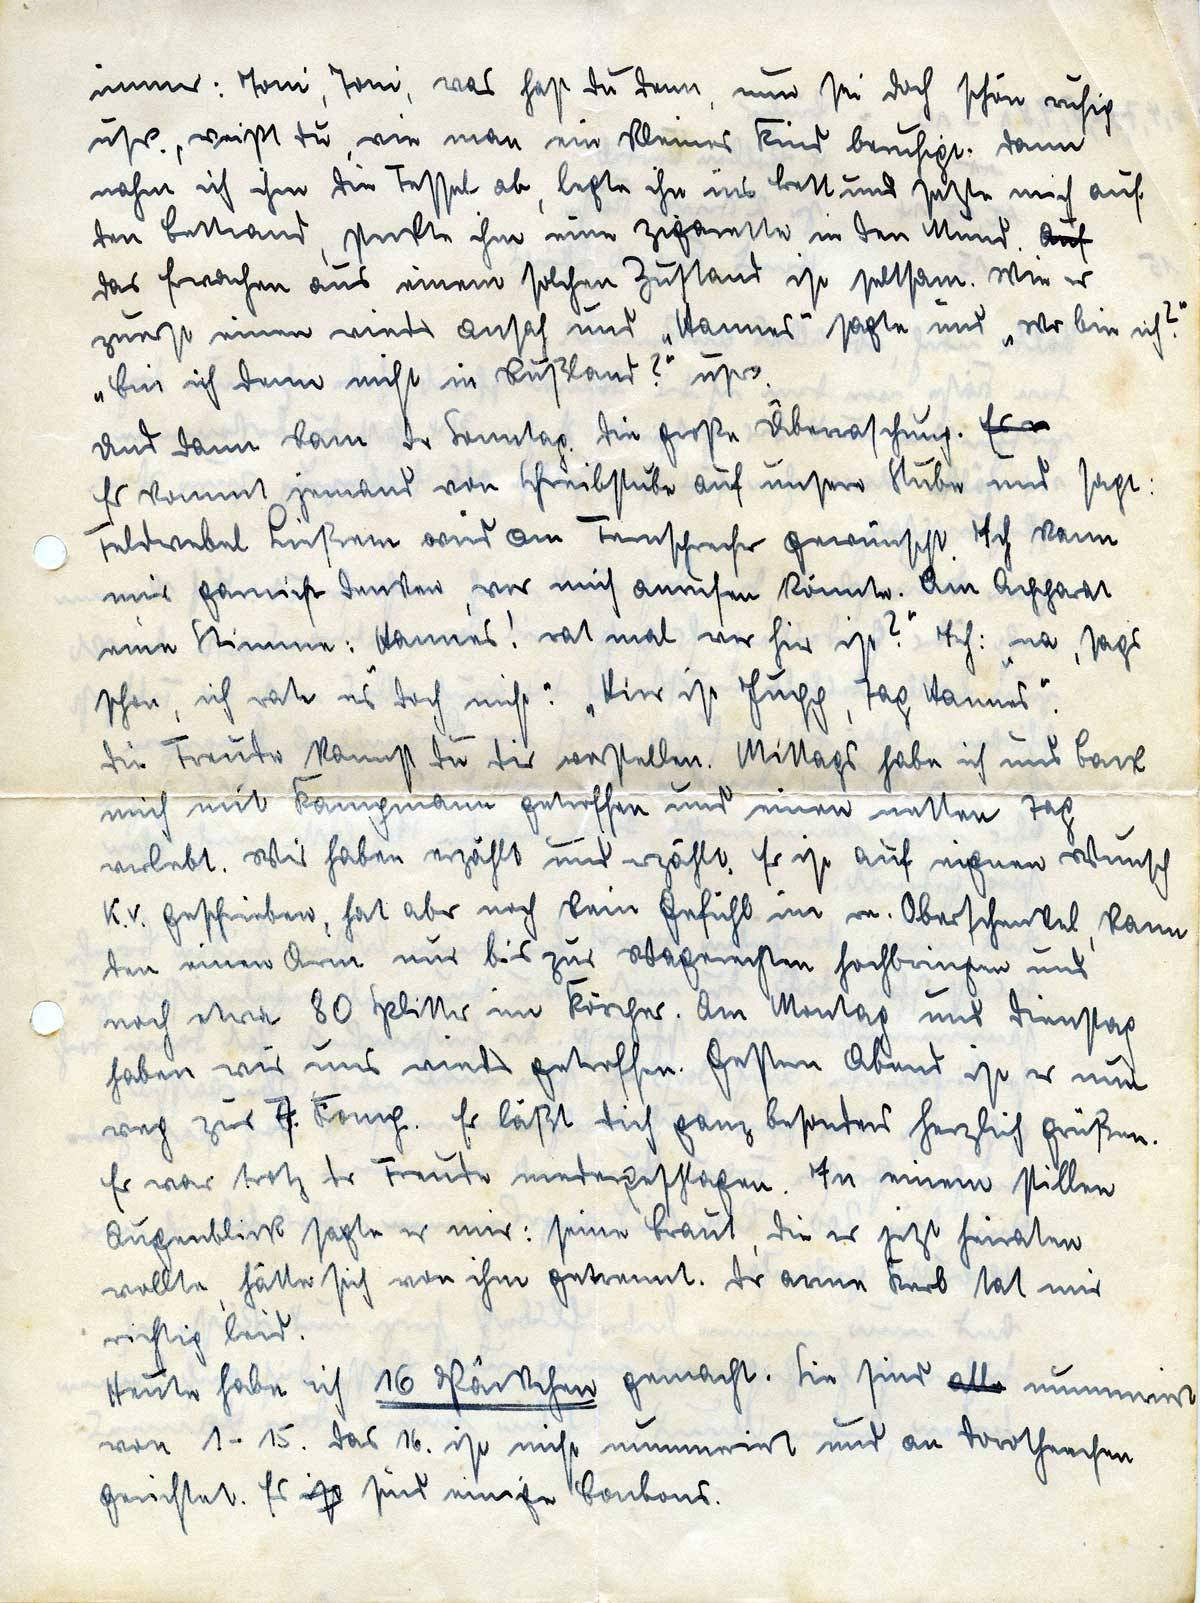 immer: Toni, Toni, was hast du denn, nun sei doch schön ruhig
usw., weißt du, wie man ein kleines Kind beruhigt. Dann
nahm ich ihm die Fessel ab, legte ihn ins Bett und setzte mich auf
den Bettrand, steckte ihm eine Zigarette in den Mund. Auf
das Erwachen aus einem solchen Zustand ist seltsam. Wie er
zuerst einen wieder ansah und „Hannes" sagte und „wo bin ich?"
„bin ich denn nicht in Rußland?" usw.
Und dann kam der Sonntag, die große Überraschung. Es
Es kommt jemand von Schreibstube auf unsere Stube und sagt:
Feldwebel Ließem wird am Fernsprecher gewünscht. Ich kann
mir garnicht denken, wer mich anrufen könnte. Am Apparat
eine Stimme: Hannes! rat mal wer hier ist?" Ich: „na, sags
schon, ich rate es doch nicht". „Hier ist Jupp, Tag Hannes".
Die Freude kannst du dir vorstellen. Mittags habe ich und
mich mit Kampmann getroffen und einen netten Tag
verlebt. Wir haben erzählt und erzählt. Er ist auf eignen Wunsch
K.v. geschrieben, hat aber noch kein Gefühl im re. Oberschenkel, kann
den einen Arm nur bis zur Wagerechten hochbringen und
noch etwa 80 Splitter im Körper. Am Montag und Dienstag
haben wir uns wieder getroffen. Gestern Abend ist er nun
weg zur 7. Komp. Er läßt dich ganz besonders herzlich grüßen.
Er war trotz der Freude niedergeschlagen. In einem stillen
Augenblick sagte er mir: seine Braut, die er jetzt heiraten
wollte, hätte sich von ihm getrennt. Der arme Kerl tat mir
richtig leid.
Heute habe ich 16 Päckchen gemacht. Sie sind alle nummeriert
von 1-15. Das 16. ist nicht nummeriert und an Dorotheechen
gerichtet. Es ist sind einige Bonbons.